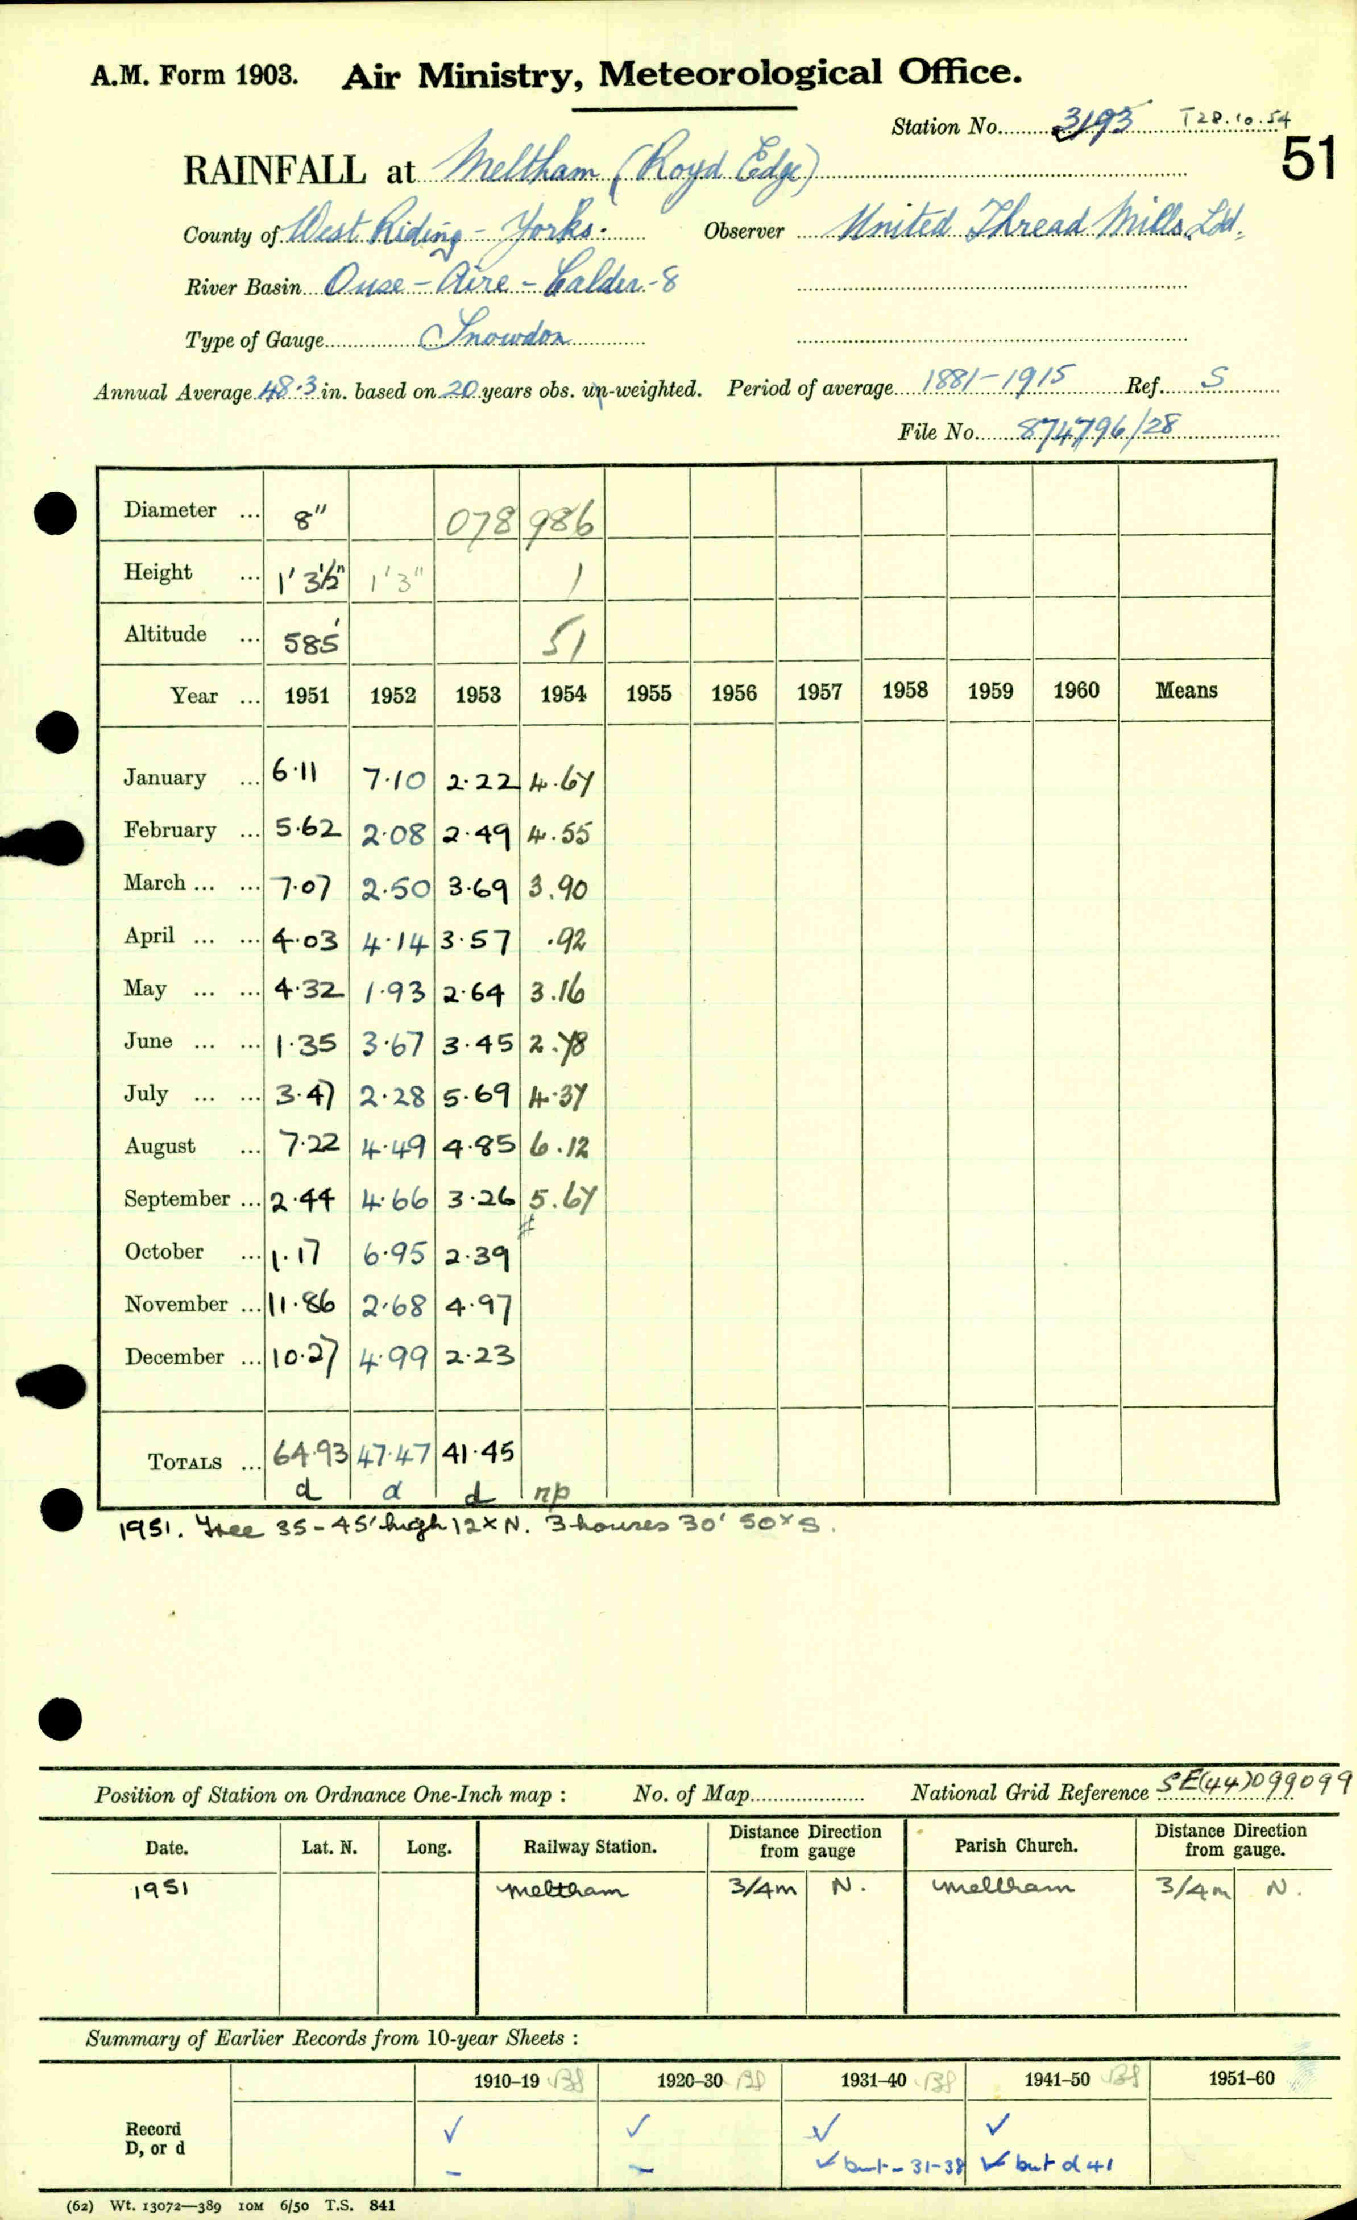 A.M. Form 1903. Air Ministry, Meteorological Office.
Station No. 3193 T 28.10.54
51
RAINFALL at Meltham (Royd Edge)
County of West Riding - Yorks. Observer United Thread Mills Ltd.
River Basin Ouse - Aire - Calder - 8
Type of Gauge Snowdon
Annual Average 48.3 in. based on 20 years obs. un-weighted. Period of average 1881-1915 Ref. S
File No. 874796/28
Diameter ... 8" 078 986
Height ... 1' 3½" 1' 3" 1
Altitude ... 585' 51
Year ... 1951 1952 1953 1954 1955 1956 1957 1958 1959 1960 Means
January ... 6.11 7.10 2.22 4.67
February ... 5.62 2.08 2.49 4.55
March ... ... 7.07 2.50 3.69 3.90
April ... ... 4.03 4.14 3.57 .92
May ... ... 4.32 1.93 2.64 3.16
June ... ... 1.35 3.67 3.45 2.78
July ... ... 3.47 2.28 5.69 4.37
August ... 7.22 4.49 4.85 6.12
September ... 2.44 4.66 3.26 5.67
October ... 1.17 6.95 2.39
November ... 11.86 2.68 4.97
December ... 10.27 4.99 2.23
TOTALS ... 64.93 47.47 41.45
d d d np
1951. Tree 35-45' high 12x N. 3 houses 30' 50x S.
Position of Station on Ordnance One-Inch map : No. of Map National Grid Reference SE(44)099099
Date. Lat. N. Long. Railway Station. Distance from gauge Direction Parish Church. Distance from gauge. Direction
1951 Meltham 3/4m N. Meltham 3/4m N.
Summary of Earlier Records from 10-year Sheets :
1910-19 1920-30 1931-40 1941-50 1951-60
Record ✓ ✓ ✓ ✓
D, or d – – ✓ but - 31-38 ✓ but d 41
(62) Wt. 13072—389 10M 6/50 T.S. 841